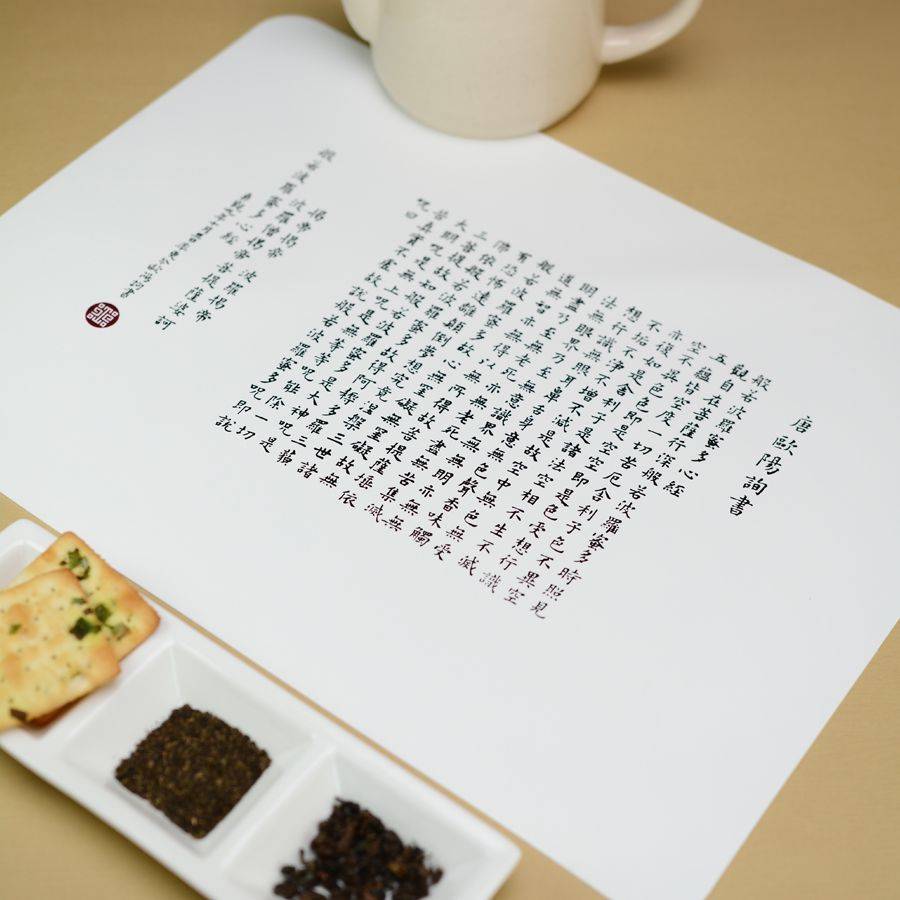 唐歐陽詢書
般若波羅蜜多心經
觀自在菩薩行深般若波羅蜜多時照見
五蘊皆空度一切苦厄舍利子色不異空
空不異色色即是空空即是色受想行識
亦復如是舍利子是諸法空相不生不滅
不垢不淨不增不減是故空中無色無受
想行識無眼耳鼻舌身意無色聲香味觸
法無眼界乃至無意識界無無明亦無無
明盡乃至無老死亦無老死盡無苦集滅
道無智亦無得以無所得故菩提薩埵依
般若波羅蜜多故心無罣礙無罣礙故無
有恐怖遠離顛倒夢想究竟涅槃三世諸
佛依般若波羅蜜多故得阿耨多羅三藐
三菩提故知般若波羅蜜多是大神呪是
大明呪是無上呪是無等等呪能除一切
苦真實不虛故說般若波羅蜜多呪即說
呪曰
揭帝揭帝 波羅揭帝
波羅僧揭帝 菩提薩婆訶
般若波羅蜜多心經